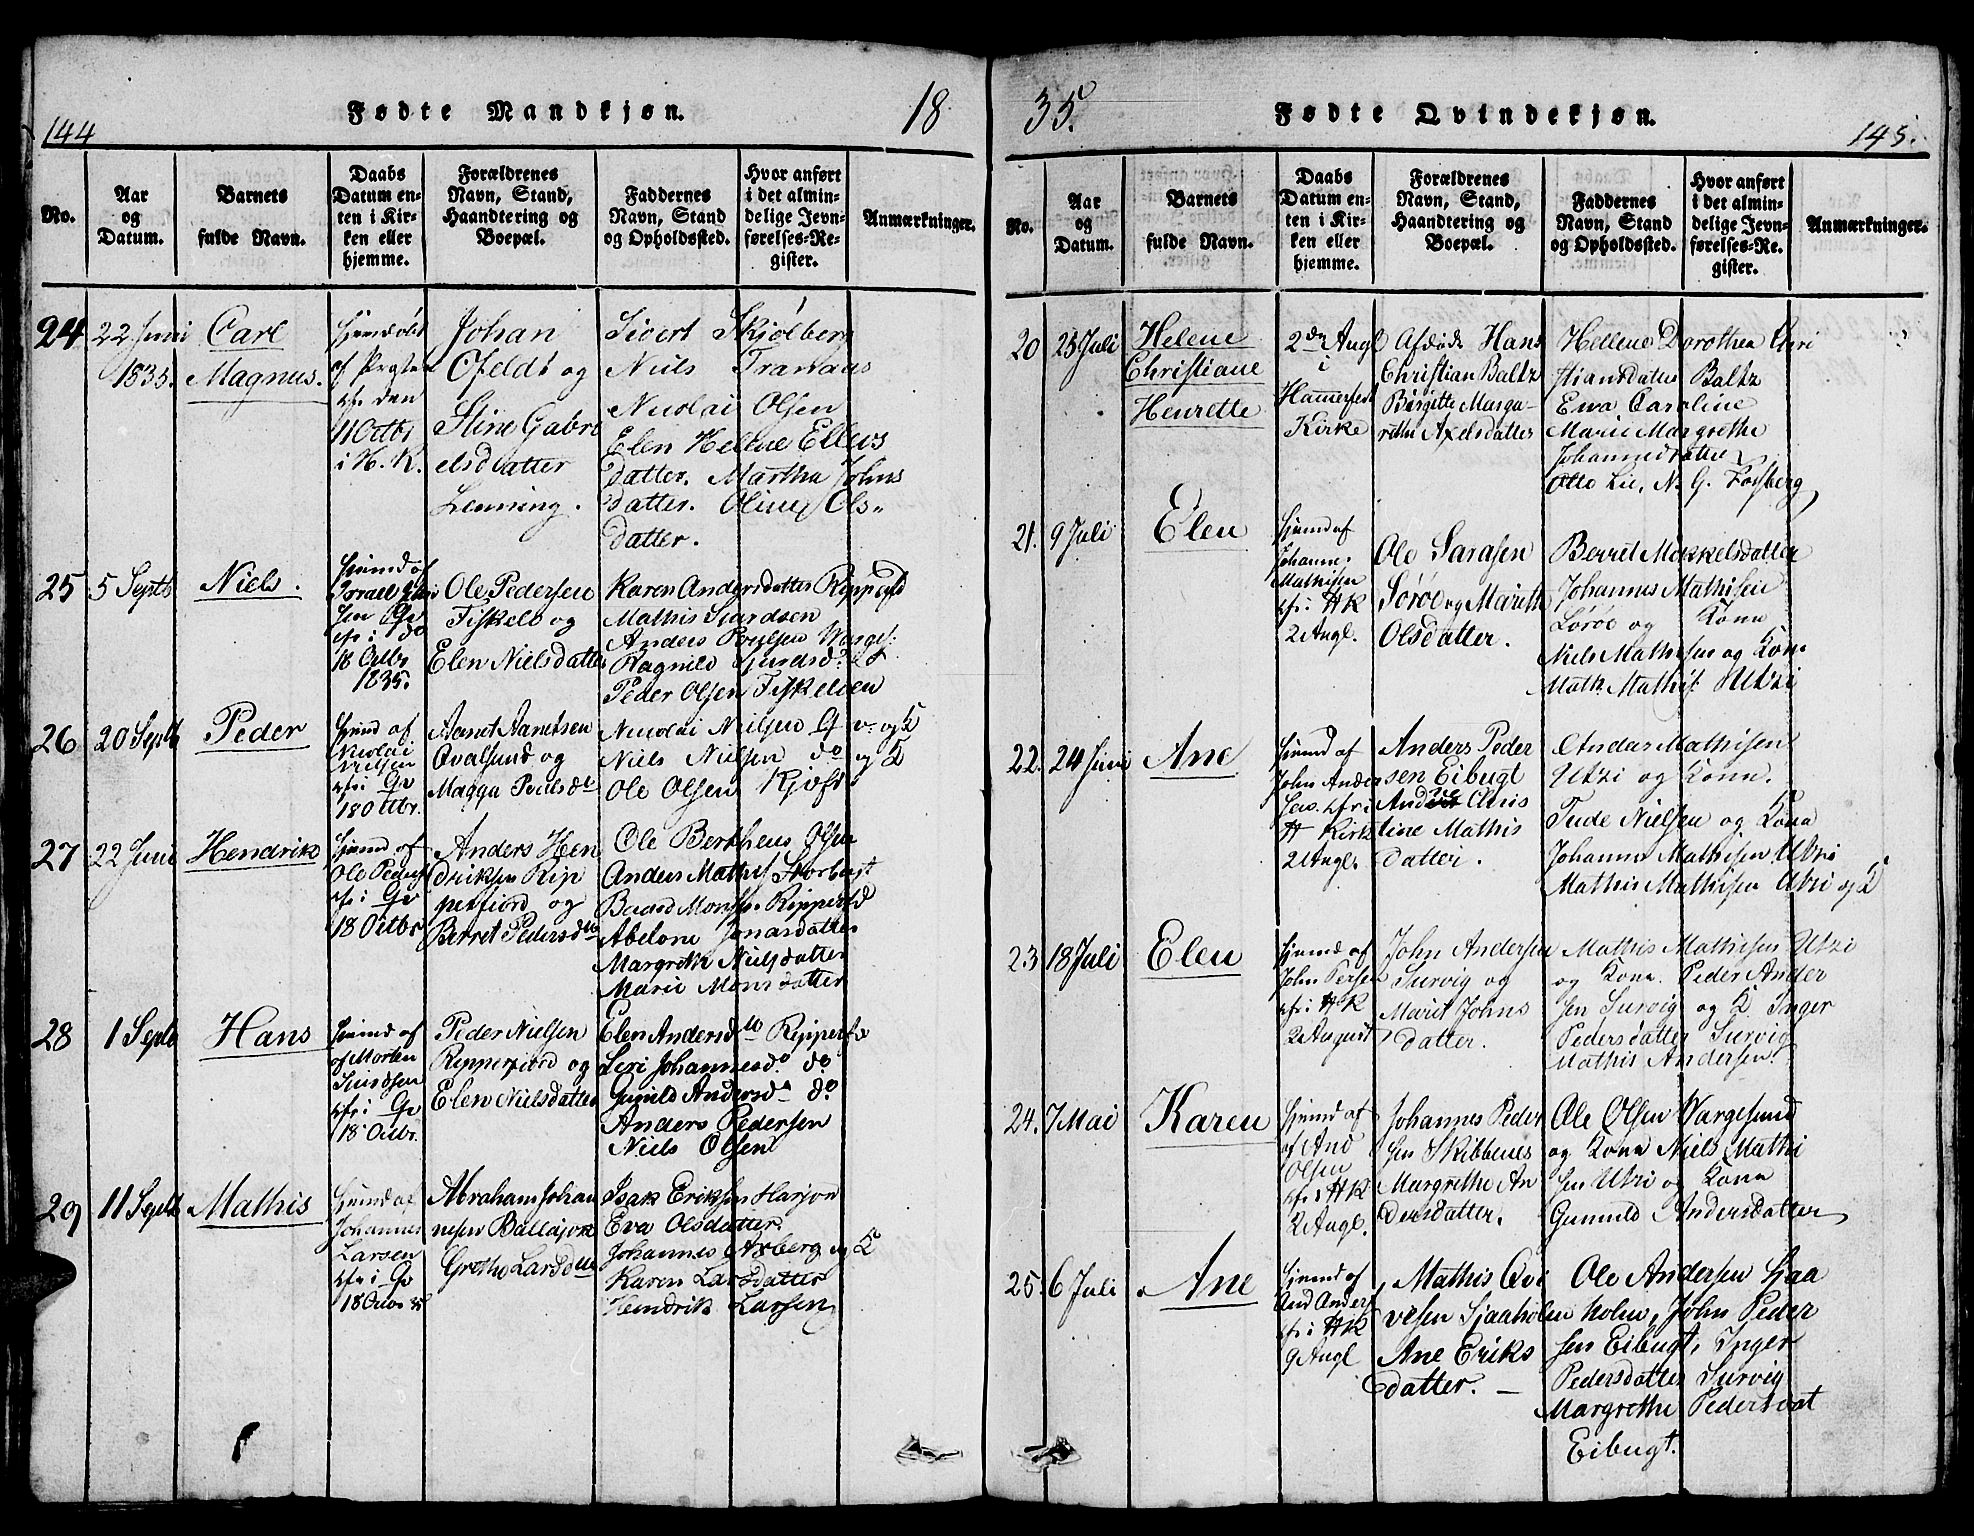 144
Fødte Mandkjøn.
18
No.
Aar og Datum.
Barnets fulde Navn.
Daabs Datum enten i Kirken eller hjemme.
Forældrenes Navn, Stand, Haandtering og Boepæl.
Faddernes Navn, Stand og Opholdssted.
Hvor anført i det almindelige Jevnførelses-Register.
Anmærkninger.
24
22 Juni
1835.
Carl
Magnus.
Hjemdøbt
af
den
11 Octbr
i H. K.
Johan
Ofeldt og
Stine Gabri
elsdatter
Lenning.
Sivert Skjølberg
Niels Tranaas
Nicolai Olsen
Elen Helene Ellevs
datter. Martha Johns
datter. Oline Ols-
datter.
25
5 Septb
Niels.
Hjemd af
Israel
sen Gv
i do
18 Octbr
1835.
Ole Pedersen
Fiskelv og
Elen Nielsdatter
Karen Andersdatter Ripperfd
Mathis Sjurdsen
Anders Poulsen
Ragnild Sjurdsd.
Peder Olsen Fiskelven
26
20 Septb
Peder
Hjemd af
Nicolai
Nielsen
i Gv
18 Octbr.
Aanet Aanetsen
Qvalsund og
Magga
Nicolai Nielsen
Niels Nielsen do og K
Ole Olsen
27
22 Juni
Hendrik
Hjemd af
Ole Peders
i Gv
18 Octbr
Anders Hen
driksen Rip
perfiord og
Berret Pedersdtr
Ole Bertheus Olsen
Anders Mathis Storbugt
Baard Monsen Ripperfd
Abelone Jonasdatter
Margreth Nielsdatter
Marie Monsdatter
28
1 Septb
Hans
Hjemd af
af Morten
Sjurdsen
i Gv
18 Octbr.
Peder Nielsen
Ripperfiord og
Elen Nielsdatter
Elen Andersdtr Ripperfd
Siri Johannesd. do
Gunild Andersd. do
Anders Pedersen
Niels Olsen
29
11 Septb
Mathis
Hjemd af
Johannes
Larsen
i Gv
18 Octbr 35
Abraham Johan
nesen Ballasjok
Grethe Larsdtr
Isak Eriksen
Eva Olsdatter.
Johannes Arberg og K
Karen Larsdatter
Hendrik Larsen
35.
Fødte Qvindekjøn.
145.
No.
Aar og Datum.
Barnets fulde Navn.
Daabs Datum enten i Kirken eller hjemme.
Forældrenes Navn, Stand, Haandtering og Boepæl.
Faddernes Navn, Stand og Opholdssted.
Hvor anført i det almindelige Jevnførelses-Register.
Anmærkninger.
20
25 Juli
Helene
Christiane
Henrette
2den Augl
i
Hamerfest
Kirke
Afdøde Hans
Christian Baltz
Birgitte Marga-
rethe Axelsdatter
Hellene Dorothea Chri
stiansdatter Baltz
Ewa Caroline
Marie Margrethe
Johannesdatter
Otto Lie, N. G. Forsberg
21.
9 Juli
Elen
Hjemd af
Johanne.
Mathisen
i HK
2 Augl.
Ole Sarasen
Sørøe og Mareth
Olsdatter.
Berret Mikkelsdatter
Johannes Mathisen
Sørøe og Kone
Niels Mathisen og Kone
Math. Mathis. Utzi
22.
24 Juni
Ane
Hjemd af
John Ander
sen. i
H Kirk
2 Augl.
Anders Peder
sen Eibugt
Chris
tine Mathis
datter.
Andas Mathisen
Utzi og Kone.
Tude Nielsen og Kona
Johanna Mathisen Utzi
Mathis Mathisen Utzi og K
23
18 Juli
Elen
Hjemd af
John Persen
i HK
2 August
John Andersen
Survig og
Marit Johns
datter.
Mathis Mathisen Utzi
og Kone. Peder Ander
sen Survig og K Inger
Pedersdatter Survig
Mathis Andersen
24.
7 Mai
Karen
Hjemd af
af And
Olsen
i HK
2 Augl.
Johannes Peder
sen Skibbenes
Margrethe An
dersdatter.
Ole Olsen Wargesund
og Kone Niels Mathi
sen Utzi og Kone
Gunnild Andersdatter
25.
6 Juli
Ane
Hjemd af
And Anders
i HK
9 Augl
Mathis Qvi
vesen Sjaaholm
Ane Eriks
datter.
Ole Andersen Sjaa
holm, John Peder
sen Eibugt, Inger
Pedersdatter Survig
Margrethe Pedersdat
Eibugt.